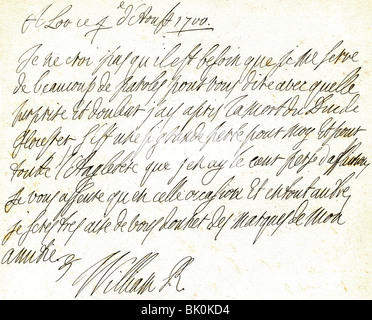 A Loo ce 4e d'Aoust 1700.
Je ne croi pas qu'il est besoin que je me serve
de beaucoup de paroles pour vous dire avec quelle
surprise et douleur j'ay apris la mort du Duc de
Glocester. C'est une si grande perte pour moy Et pour
toute l'Angleterre que j'en ay le cœur percé d'affliction
Je vous assure qu'en celle occasion Et en tout autre
je serez tres aise de vous donner des marques de mon
amitie
William R
alamy
www.alamy.com
BK0KD4